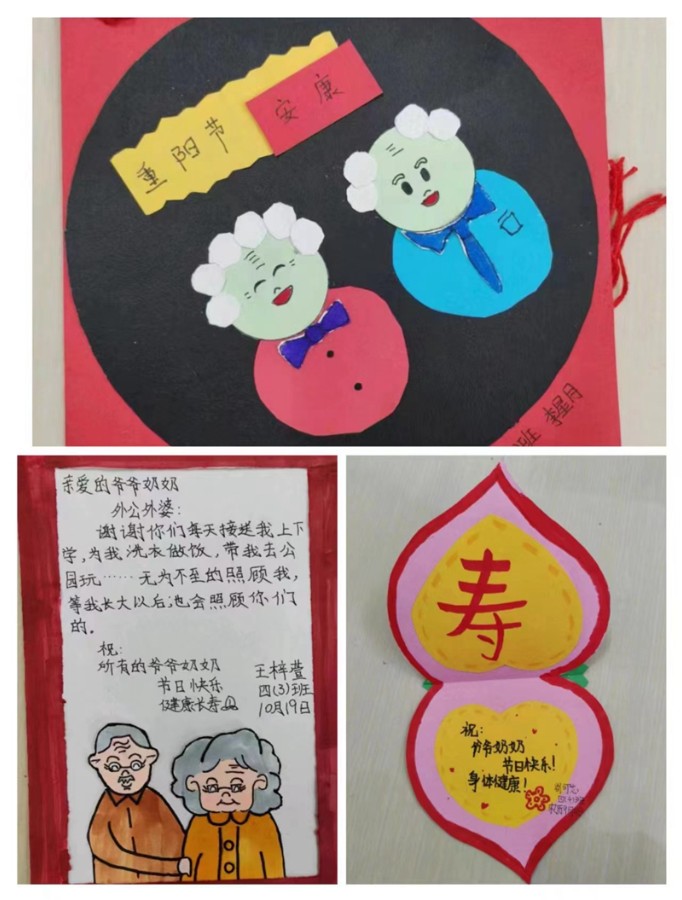 重阳节
安康
班 李星月
亲爱的爷爷奶奶
外公外婆:
谢谢你们每天接送我上下
学,为我洗衣做饭,带我去公
园玩……无为不至的照顾我,
等我长大以后也会照顾你们
的。
祝:
所有的爷爷奶奶
节日快乐
健康长寿
王梓萱
四(3)班
10月19日
寿
祝:
爷爷奶奶
节日快乐!
身体健康!